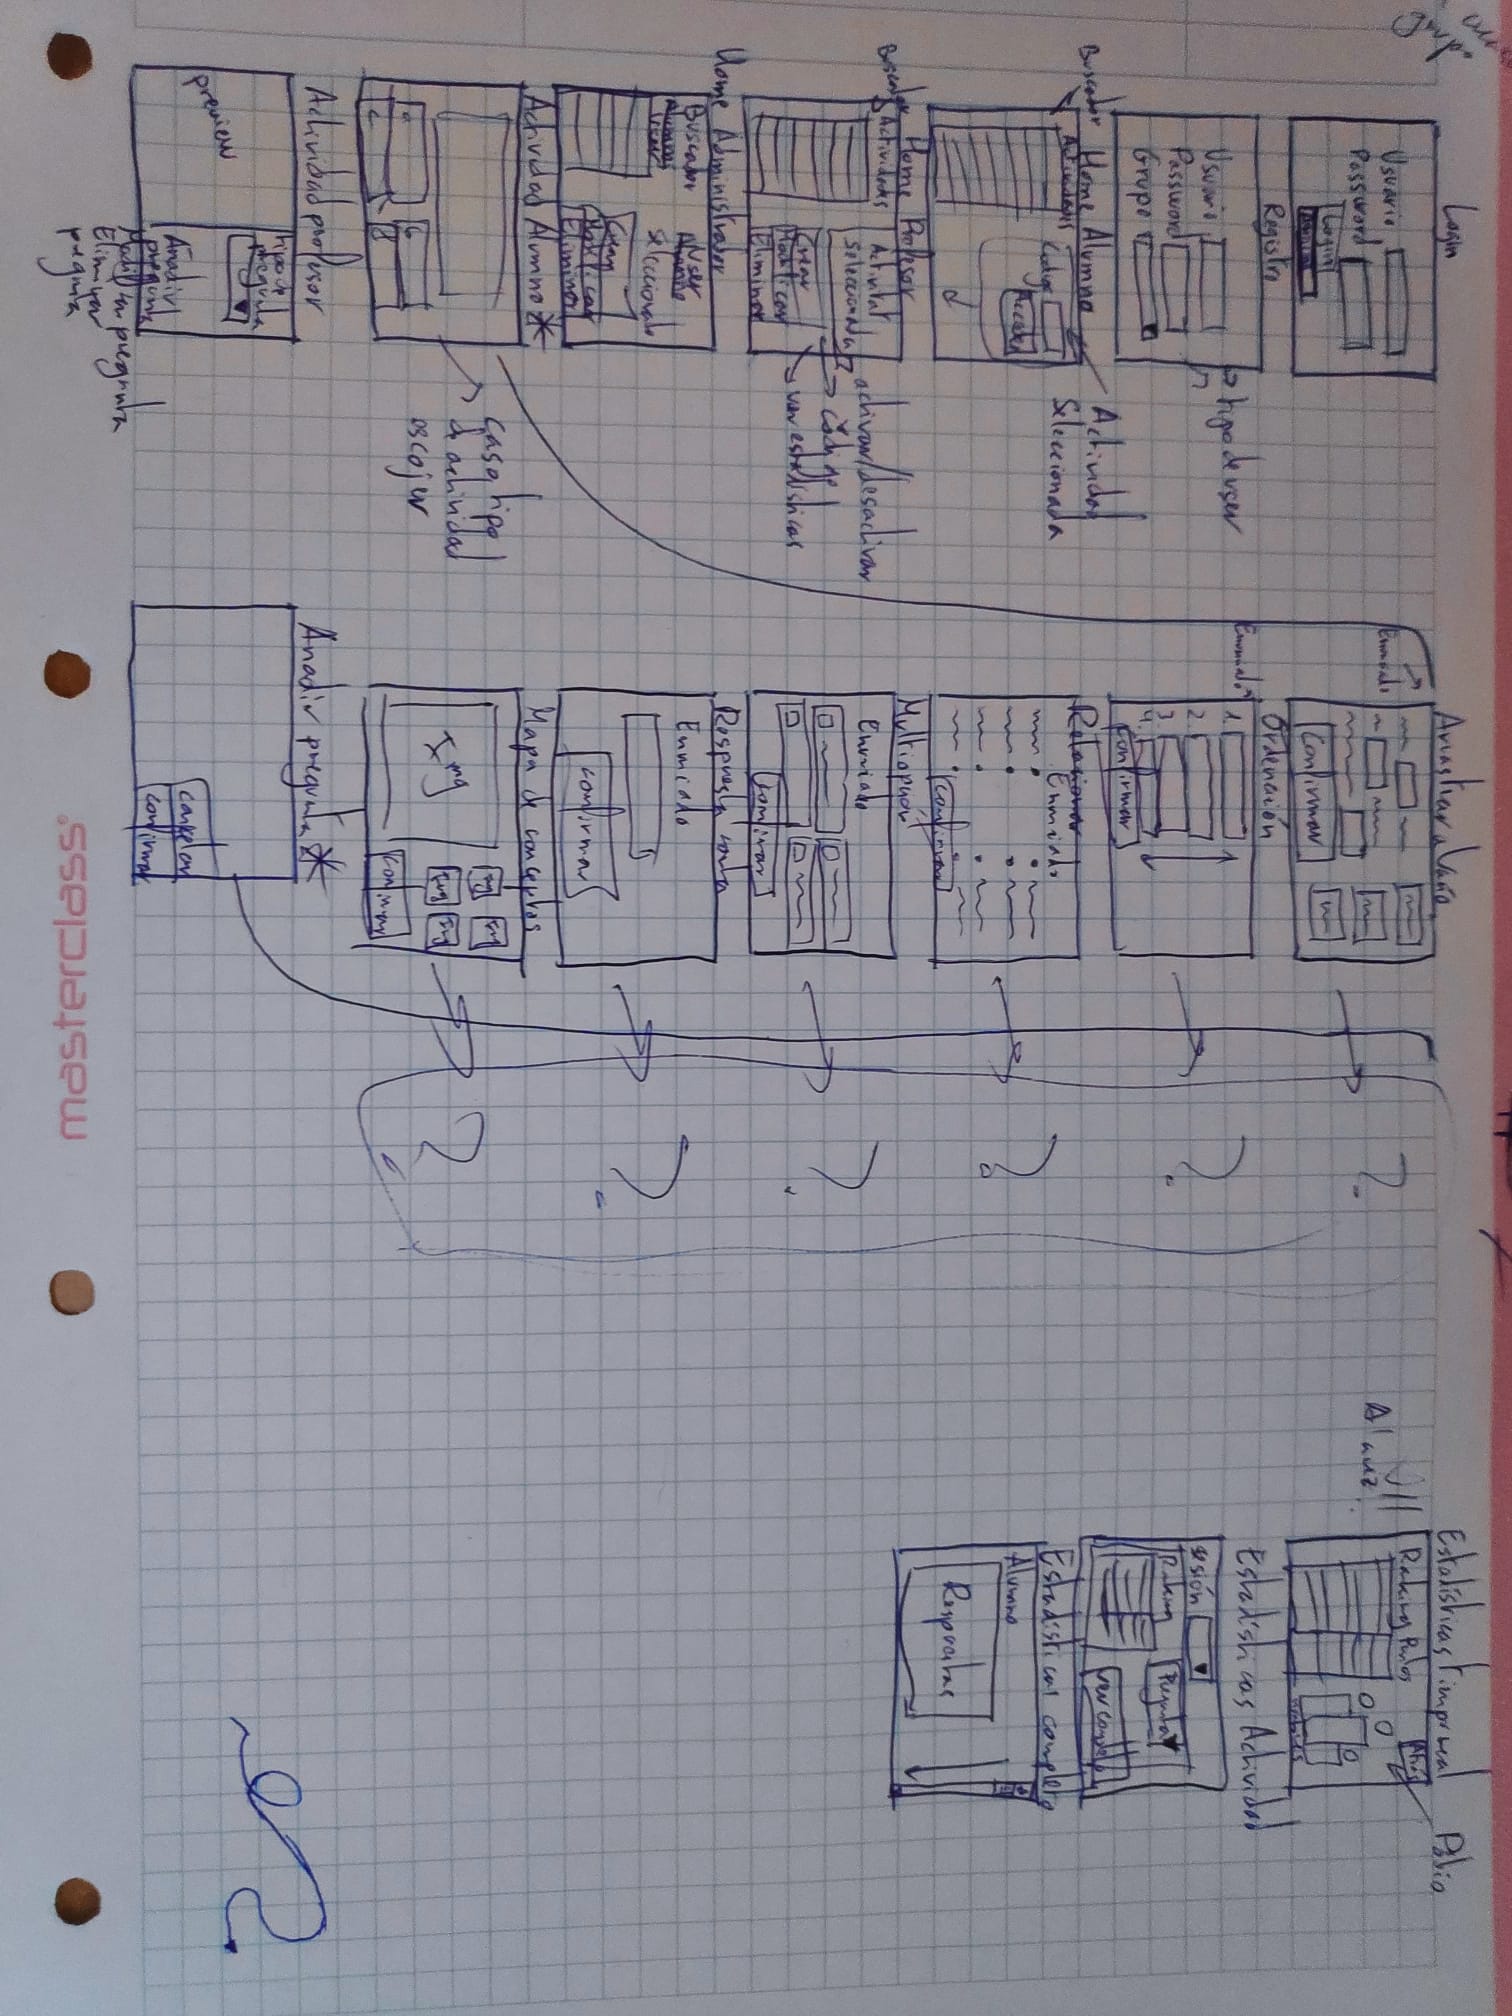 Login
Usuario
Password
Login
Registro
Usuario
Password
Grupo
tipo de user
Home Alumno
Buscador
Actividades
Código
Acceder
Actividad
Seleccionada
Home Profesor
Buscador
Actividades
Activitat
Seleccionada
Crear
Modificar
Eliminar
activar/desactivar
ver estadísticas
Home Administrador
Buscador
User
User
Seleccionado
Crear
Modificar
Eliminar
Actividad Alumno *
a
b
c
Caso tipo
d actividad
escojer
Actividad profesor
preview
tipo de
pregunta
Añadir
pregunta
Modificar pregunta
Eliminar
pregunta
Arrastrar al
Enunciado
Confirmar
?
Ordenación
Enunciado
1.
2.
3.
4.
Confirmar
?
Relacionar
Enunciado
Confirmar
?
Multiopción
Enunciado
Confirmar
?
Respuesta corta
Enunciado
Confirmar
?
Mapa de conceptos
Img
Img
Img
Img
Img
Confirmar
?
Añadir pregunta *
Cancelar
Confirmar
Al
Estadísticas
Ranking
Puntos
Estadísticas Actividad
Ranking
Pregunta
Ver completo
Estadísticas completo
Alumno
Respuestas
masterclass